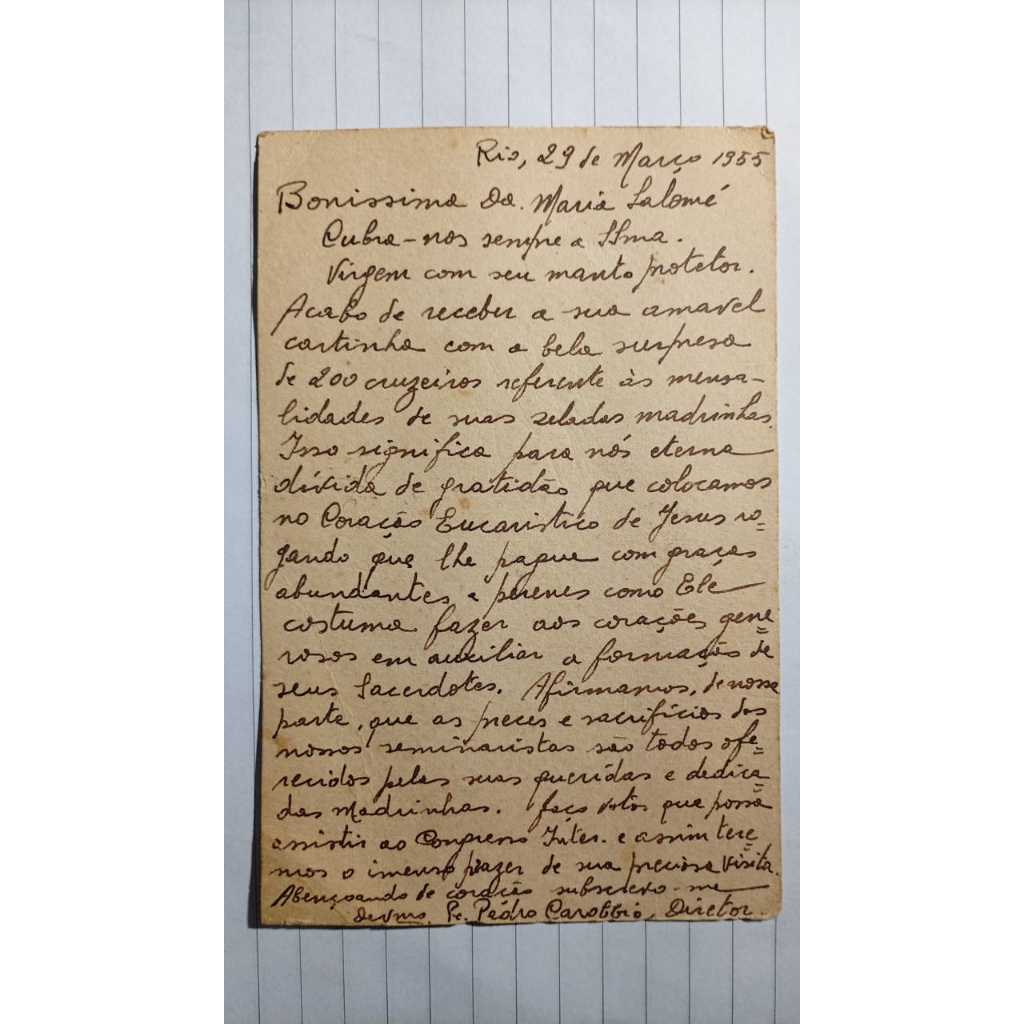 Rio, 29 de Março 1955
Bonissima Da. Maria Salomé
Cubra-nos sempre a SSma.
Virgem com seu manto protetor.
Acabo de receber a sua amavel
cartinha com a bela surpresa
de 200 cruzeiros referente às mensa-
lidades de suas zeladas madrinhas.
Isso significa para nós eterna
dívida de gratidão que colocamos
no Coração Eucaristico de Jesus ro=
gando que lhe pague com graças
abundantes e perenes como Ele
costuma fazer aos corações gene=
rosos em auxiliar a formação de
seus Sacerdotes. Afirmamos, de nossa
parte, que as preces e sacrifícios dos
nossos seminaristas são todos ofe=
recidos pelas suas queridas e dedica=
das Madrinhas. Faço votos que possa
assistir ao Congresso Inter. e assim tere=
mos o imenso prazer de sua preciosa visita.
Abençoando de coração subscrevo-me
Devmo. Pe. Pedro Carobbio, Diretor.